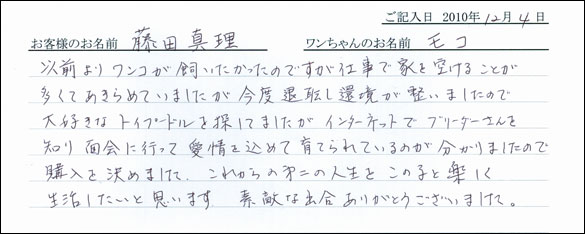 ご記入日 2010年12月4日
お客様のお名前 藤田真理 ワンちゃんのお名前 モコ
以前よりワンコが飼いたかったのですが仕事で家を空けることが
多くてあきらめていましたが今度退転し環境が整いましたので
大好きなトイプードルを探してましたがインターネットでブリーダーさんを
知り面会に行って愛情を込めて育てられているのが分かりましたので
購入を決めました。これからの第二の人生をこの子と楽しく
生活したいと思います 素敵な出合ありがとうございました。